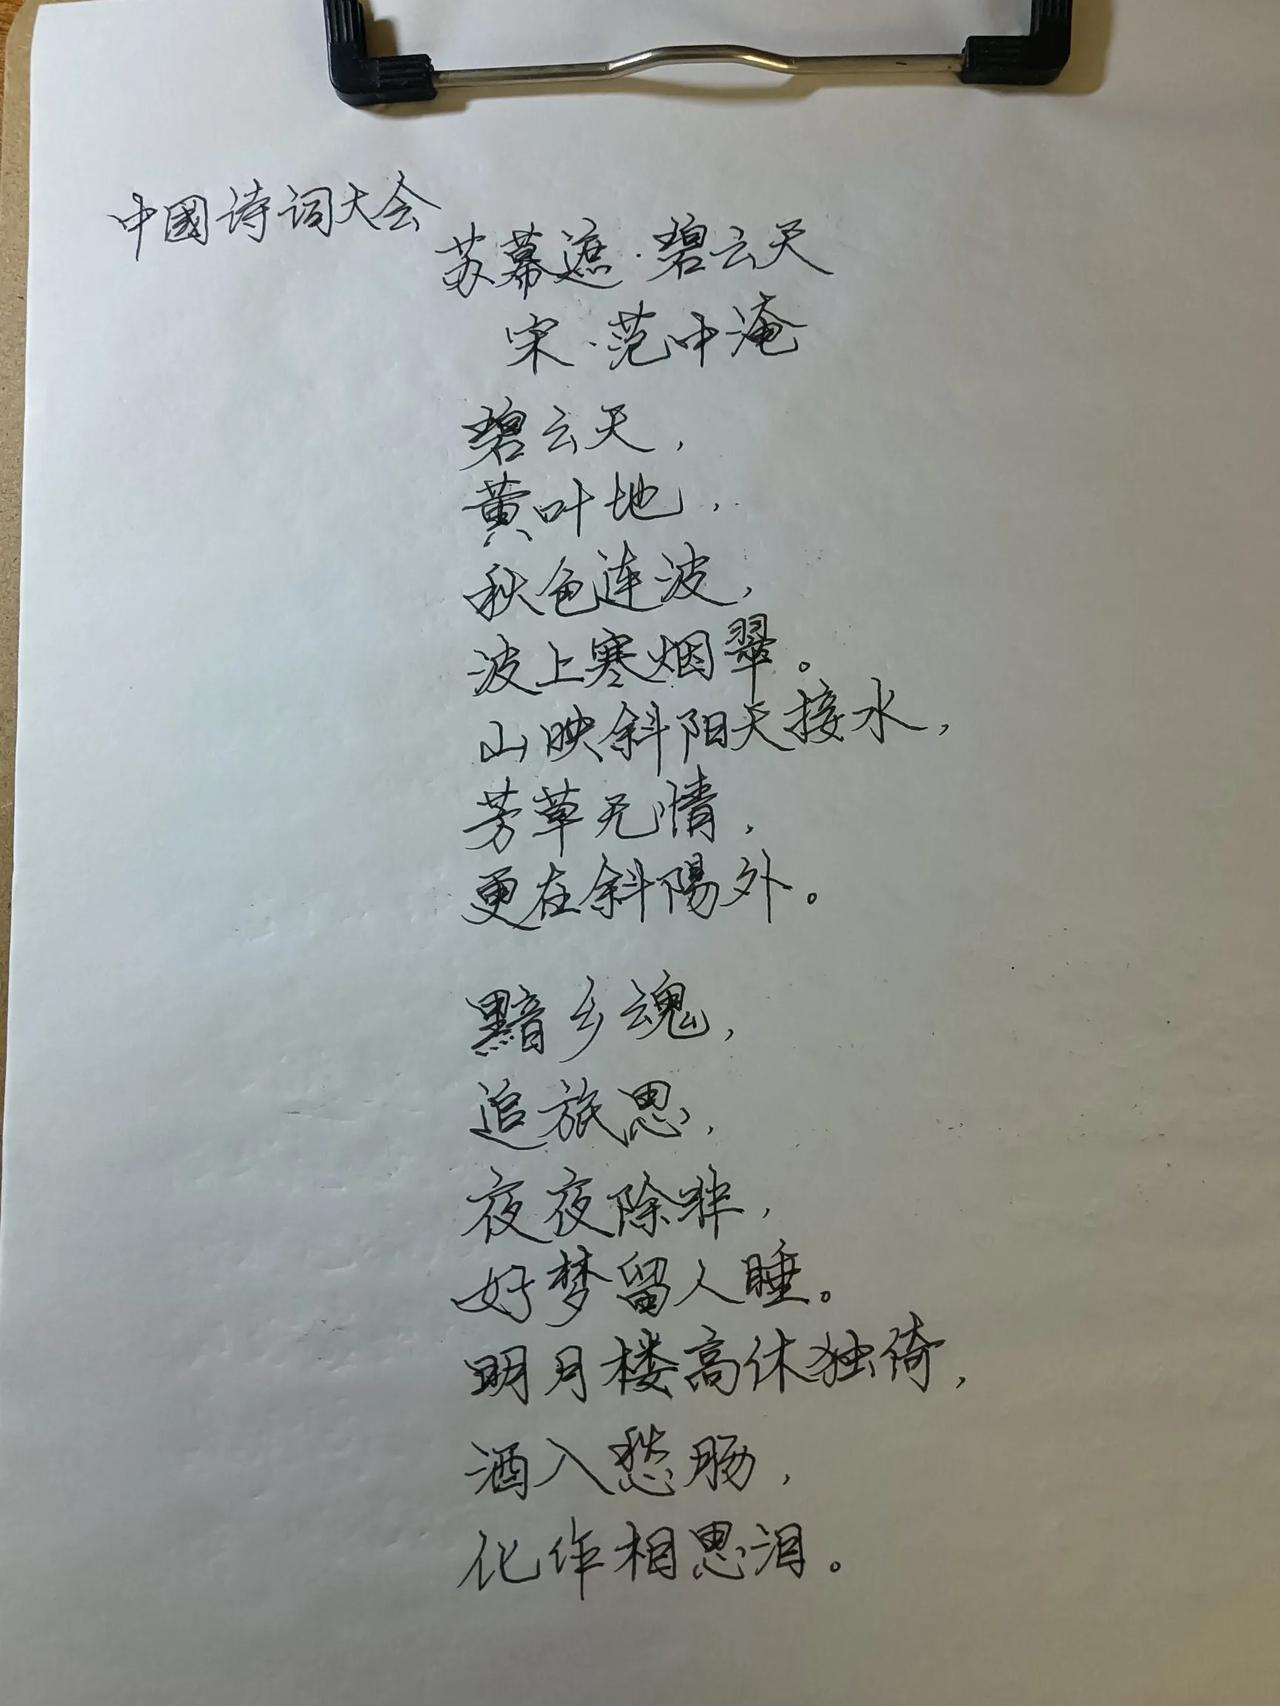 中國诗词大会
苏幕遮·碧云天
宋·范中淹
碧云天，
黄叶地，
秋色连波，
波上寒烟翠。
山映斜阳天接水，
芳草无情，
更在斜陽外。
黯乡魂，
追旅思，
夜夜除非，
好梦留人睡。
明月楼高休独倚，
酒入愁肠，
化作相思泪。